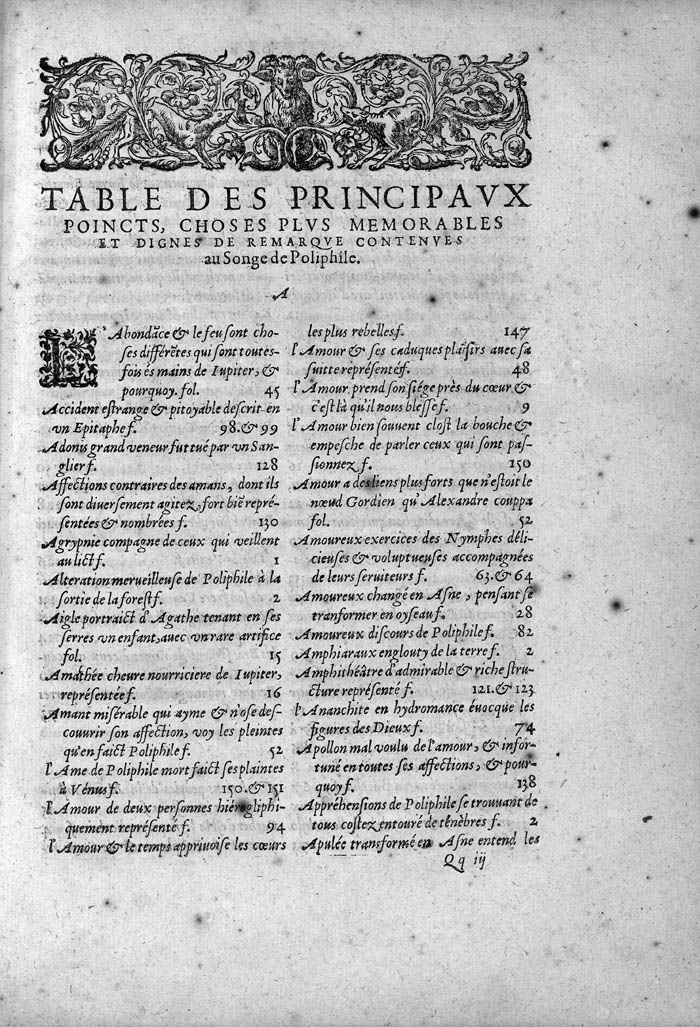 TABLE DES PRINCIPAVX
POINCTS, CHOSES PLVS MEMORABLES
ET DIGNES DE REMARQVE CONTENVES
au Songe de Poliphile.
A
L'Abondãce & le feu sont cho-
ses differẽtes qui sont toutes-
fois és mains de Iupiter, &
pourquoy. fol. 45
Accident estrange & pitoyable descrit en
vn Epitaphe f. 98. & 99
Adonis grand veneur fut tué par vn San-
glier f. 128
Affections contraires des amans, dont ils
sont diuersement agitez, fort biẽ repré-
sentées & nombrées f. 130
Agrypnie compagne de ceux qui veillent
au lict f. 1
Alteration merueilleuse de Poliphile à la
sortie de la forest f. 2
Aigle portraict d'Agathe tenant en ses
serres vn enfant, auec vn rare artifice
fol. 15
Amathée cheure nourriciere de Iupiter,
représentée f. 16
Amant misérable qui ayme & n'ose des-
couurir son affection, voy les pleintes
qu'en faict Poliphile f. 52
l'Ame de Poliphile mort faict ses plaintes
à Vénus f. 150. & 151
l'Amour de deux personnes hiérogliphi-
quement représenté f. 94
l'Amour & le temps appriuoise les cœurs
les plus rebelles f. 147
l'Amour & ses caduques plaisirs auec sa
suitte représentés f. 48
l'Amour prend son siége près du cœur &
c'est là qu'il nous blesse f. 9
l'Amour bien souuent clost la bouche &
empesche de parler ceux qui sont pas-
sionnez f. 150
Amour a des liens plus forts que n'estoit le
nœud Gordien qu'Alexandre couppa
fol. 52
Amoureux exercices des Nymphes déli-
cieuses & voluptueuses accompagnées
de leurs seruiteurs f. 63. & 64
Amoureux changé en Asne, pensant se
tranformer en oyseau f. 28
Amoureux discours de Poliphile f. 82
Amphiaraux englouty de la terre f. 2
Amphithéâtre d'admirable & riche stru-
cture représenté f. 121. & 123
l'Ananchite en hydromance éuocque les
figures des Dieux f. 74
Apollon mal voulu de l'amour, & infor-
tuné en toutes ses affections, & pour-
quoy f. 138
Appréhensions de Poliphile se trouuant de
tous costez entouré de ténèbres f. 2
Apulée transformé en Asne entend les
Qq iij